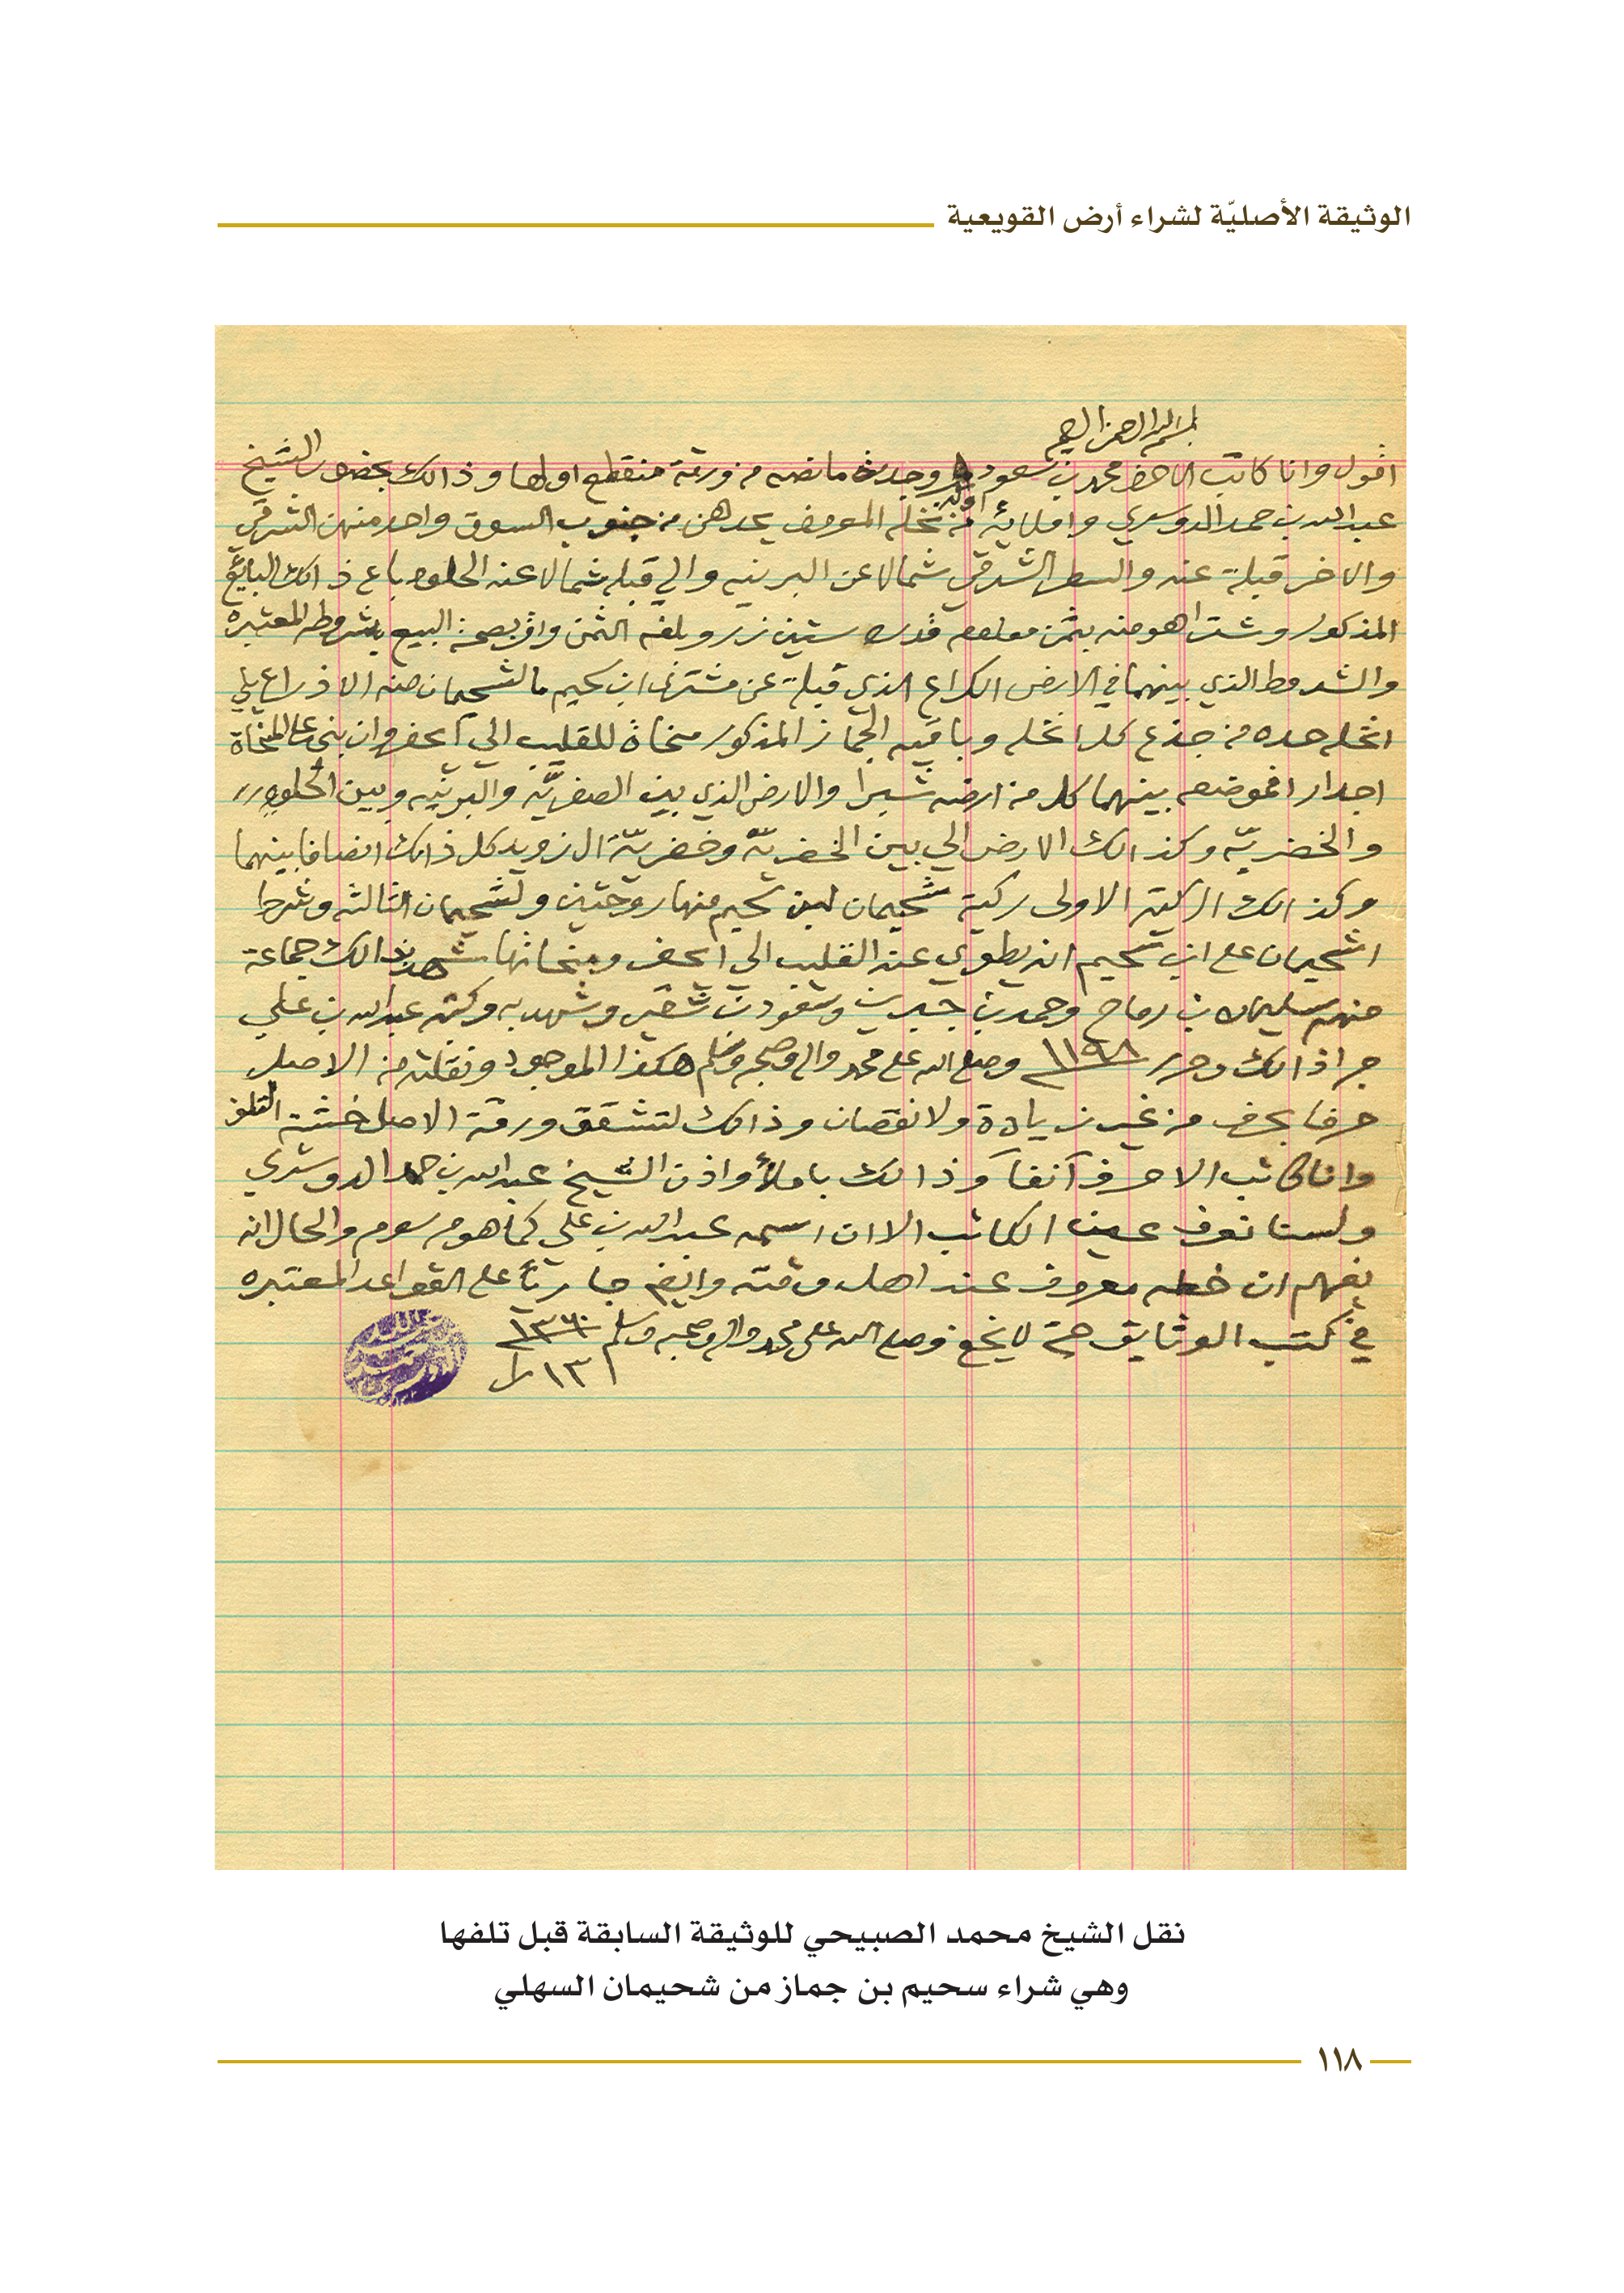 الوثيقة الأصليّة لشراء أرض القويعية
بسم الله الرحمن الرحيم
اقول وانا كاتب الاحرف محمد بن سعود وجدت ما نصه من ورقة منقطع اولها وذالك بحضور الشيخ
عبدالله بن حمد الدوسري واملايه نخله المومن يحدهن من جنوب السوق واحد منهن الشرقي
والاخر قبلة عنه والسطر الشرقي شمالا عن البرنيه والي قبله شمالا عنه الحلوه باع ذالك البائع
المذكور وشتراهو منه بثمن معلوم قدره ستين زر وبلغه الثمن واقر بصحة البيع بشروطه المعتبره
والشروط الذي بينهما في الارض الكراع الذي قبلة عن مشترى ابن سحيم ما لشحيمان منه الا ذراع يلي
انخله حده من جذع كل انخله وباقيه الجماز المذكور منحاة للقليب الي آ يحفر وان بنى على المنحاة
اجدار افموضعه بينهما كل من ارضه شبرا والارض الذي بين الصفريّه والبرنيه وبين الحلوه
والخضريّه وكذالك الارض الي بين الخضريّه وخضريّة الزويد كل ذالك انصافا بينهما
وكذالك الركية الاولى ركية شحيمان لبن سحيم منها روحتين ولشحيمان الثالثه وشرط
اشحيمان على ابن سحيم انه يطوي عنه القليب الى احفر ومنحاتها شهد بذالك جماعة
منهم سليمان بن رماح وحمد بن جبرين وسعود بن شقير وشهد به وكتبه عبدالله بن علي
جرا ذالك وحرر ١١٩٨ وصلى الله على محمد واله وصحبه وسلم هكذا الموجود ونقلته من الاصل
حرفا بحرف من غير زيادة ولا نقصان وذالك لتشقق ورقة الاصل خشية التلف
وانا كاتب الاحرف آنفاً وذالك باملأ واذن الشيخ عبدالله بن حمد الدوسري
ولسنا نعرف عين الكاتب الا ان اسمه عبدالله بن علي كما هو مرسوم والحال انه
يفهم ان خطه معروف عند اهل وقته وايضا جارياً على القواعد المعتبره
في كتب الوثايق حتى لا يخفى وصلى الله على محمد واله وصحبه وسلم ١٣٦٠
١٣ را
نقل الشيخ محمد الصبيحي للوثيقة السابقة قبل تلفها
وهي شراء سحيم بن جماز من شحيمان السهلي
١١٨